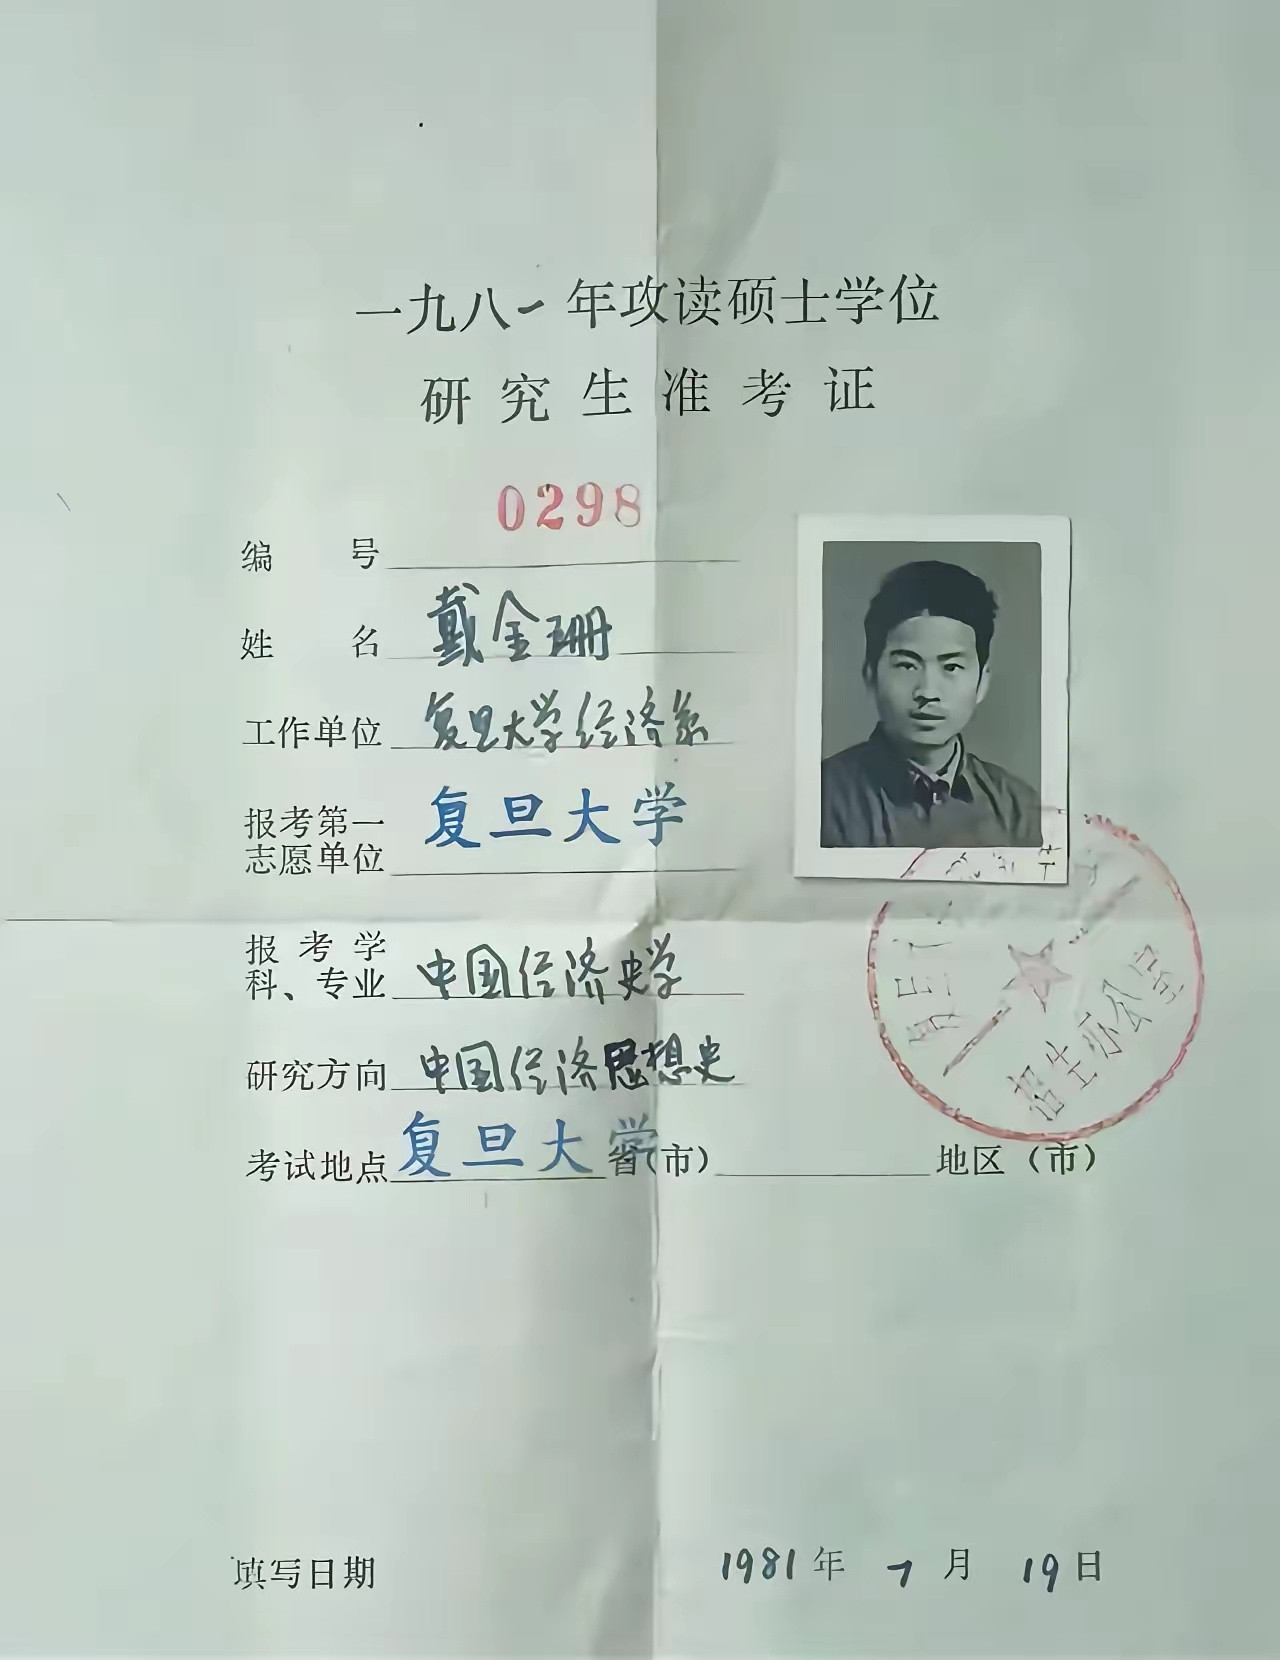 一九八一年攻读硕士学位
研究生准考证
0298
编号
姓名 戴金珊
工作单位 复旦大学经济系
报考第一
志愿单位 复旦大学
报考学
科、专业 中国经济史学
研究方向 中国经济思想史
考试地点 复旦大学 省(市) 地区(市)
招生办公室
填写日期 1981年 7月 19日